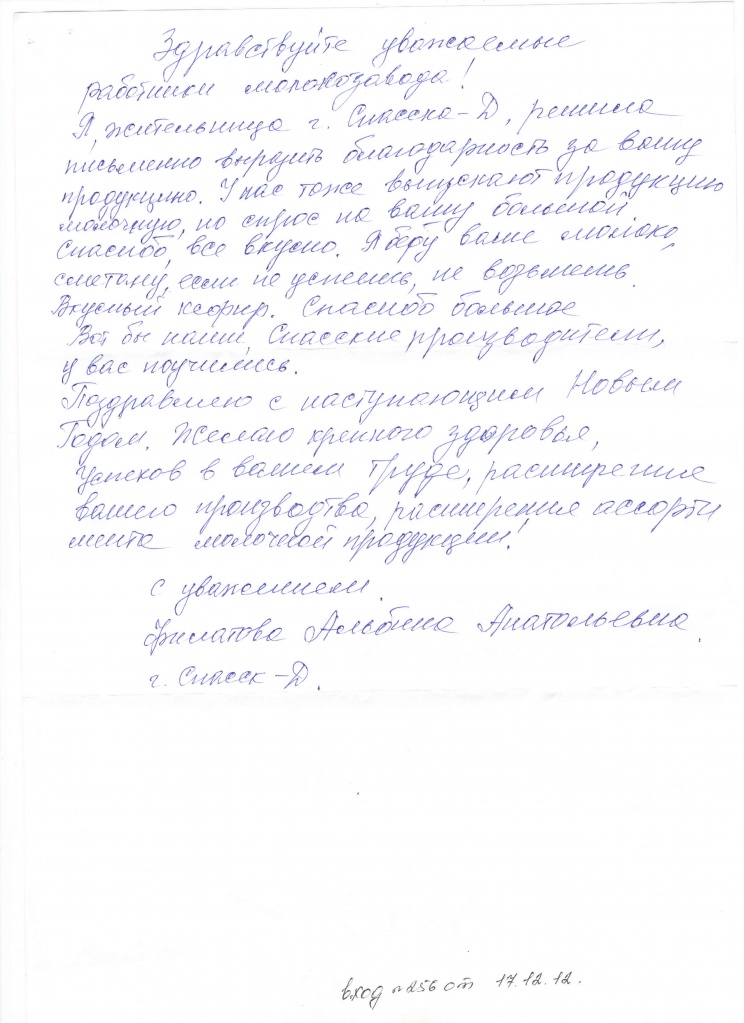 Здравствуйте уважаемые
работники молокозавода!
Я, жительница г. Спасска-Д, решила
письменно выразить благодарность за вашу
продукцию. У нас тоже выпускают продукцию
молочную, но спрос на вашу большой.
Спасибо, все вкусно. Я беру ваше молоко,
сметану, если не успеешь, не возьмешь.
Вкусный кефир. Спасибо большое
Вот бы наши, Спасские производители,
у вас поучились.
Поздравляю с наступающим Новым
Годом. Желаю крепкого здоровья,
Успехов в вашем труде, расширения
вашего производтва, расширения ассорти
мента молочной продукции!
С уважением.
Филатова Альбина Анатольевна.
г. Спасск-Д.
вход №256 от 17.12.12.